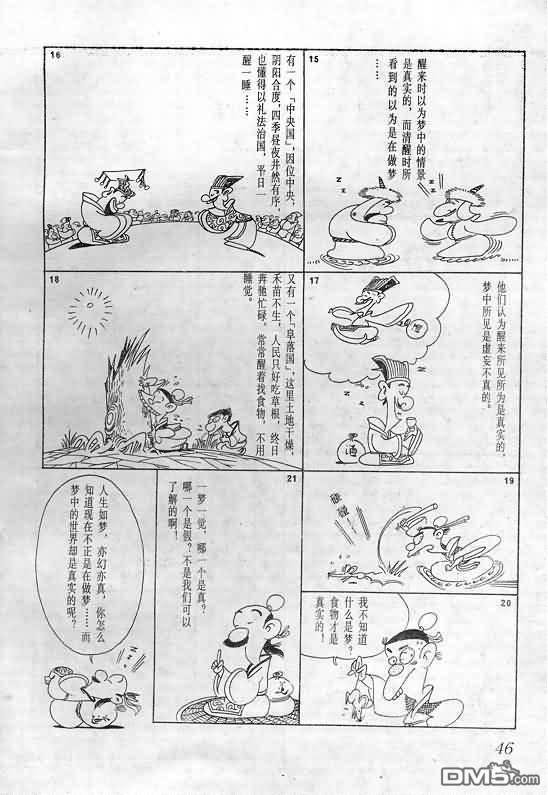 15
醒来时以为梦中的情景
是真实的，而清醒时所
看到的以为是在做梦
……
z
z
z
z
z
z
16
有一个「中央国」，因位中央，
阴阳合度，四季昼夜井然有序，
也懂得以礼法治国，平日一
醒一睡……
17
他们认为醒来所见所为是真实的，
梦中所见是虚妄不真的。
酒
18
又有一个「阜落国」，这里土地干燥，
禾苗不生，人民只好吃草根，终日
奔驰忙碌，常常醒着找食物，不用
睡觉。
19
碰
碰
20
我不知道
什么是梦？
食物才是
真实的！
21
一梦一觉，哪一个是真？
哪一个是假？不是我们可以
了解的啊！
人生如梦，亦幻亦真，你怎么
知道现在不正是在做梦……而
梦中的世界却是真实的呢？
46
DM5.com